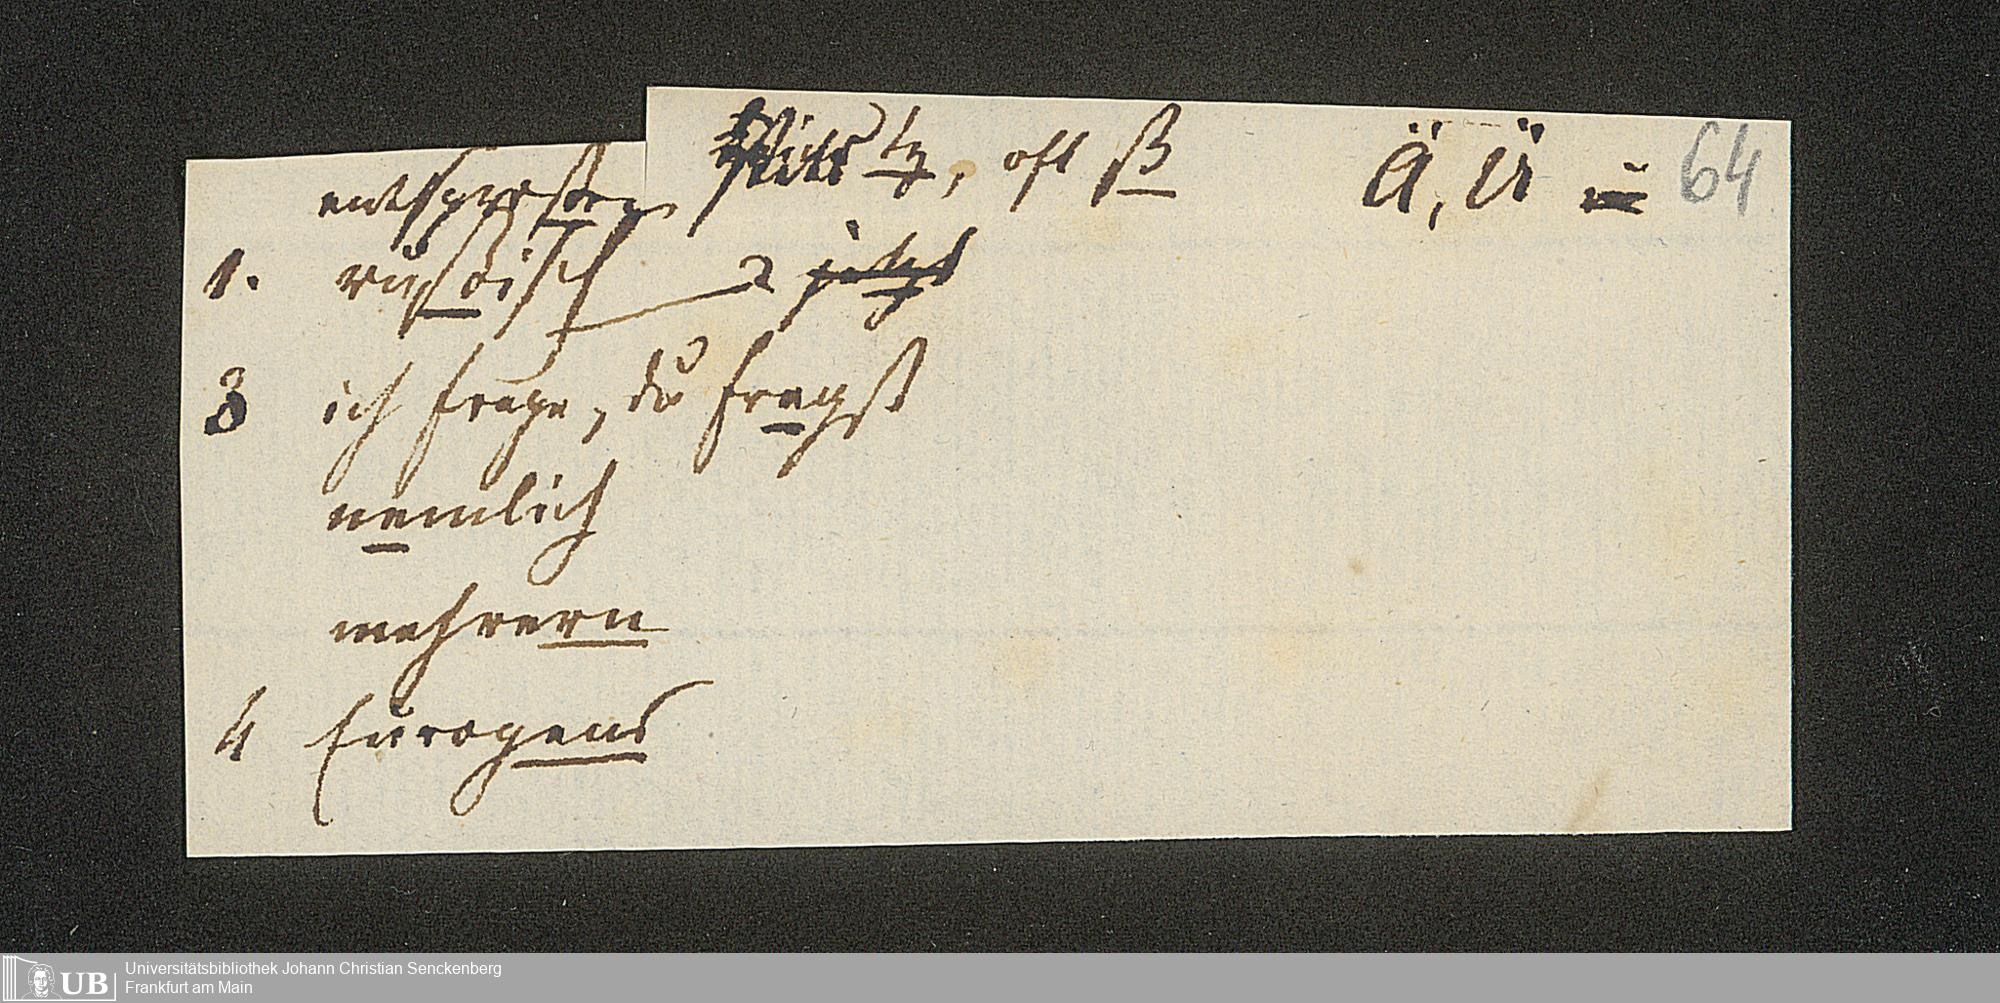 entsprossen tz, oft ß Ä, Ü 64
1. russisch 2 jetzt
3 ich frage, du fragst
nemlich
mehrern
4 Europens
UB
Universitätsbibliothek Johann Christian Senckenberg
Frankfurt am Main